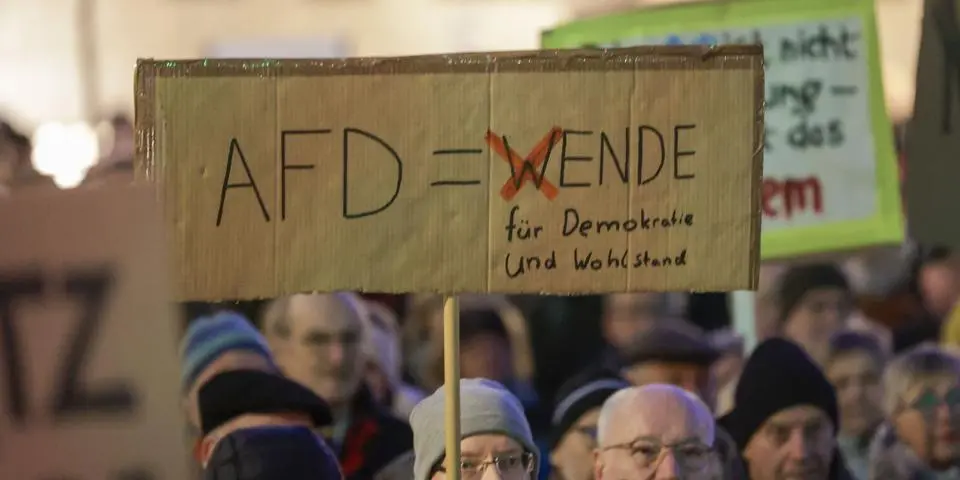 AFD = WENDE
für Demokratie
und Wohlstand
nicht
das
TZ